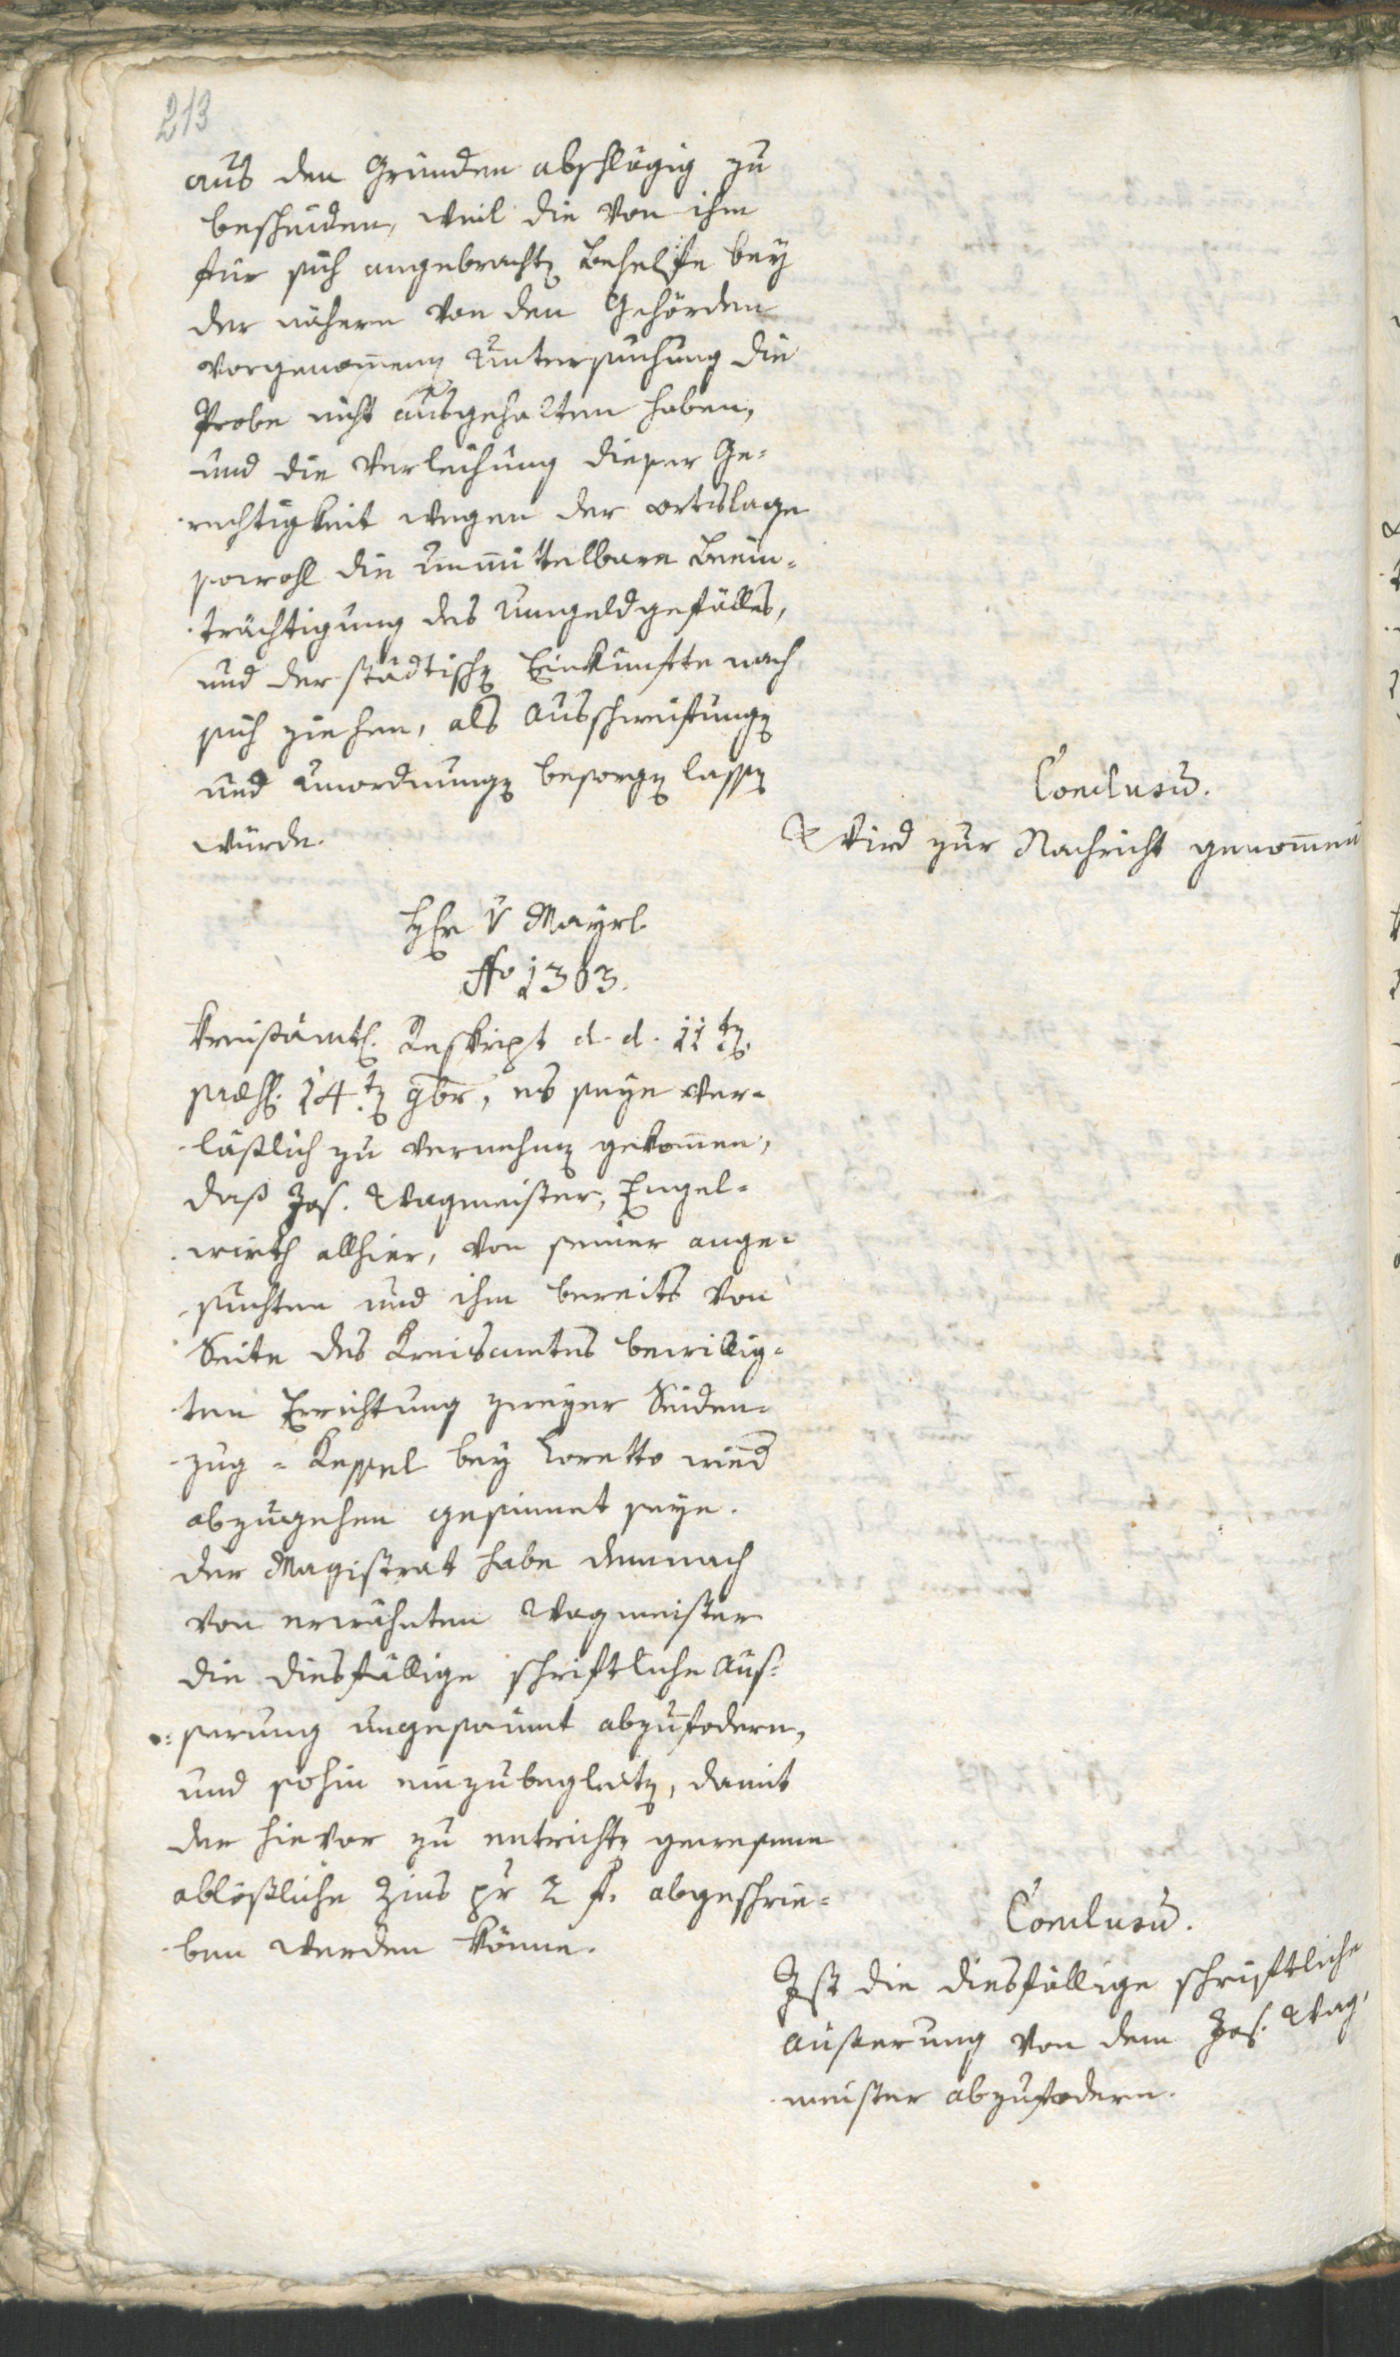 213
aus den Gründen abschlägig zu
bescheiden, weil die von ihm
für sich angebrachten Behelfe bey
der nähern von den Gehörden
vorgenom̄enen Untersuchung die
Probe nicht ausgehalten haben,
und die Verleihung dieser Ge=
rechtigkeit wegen der Ortslage
sowohl die unmittelbare Beein=
trächtigung des Umgeldgefälles,
und der städtischen Einkünfte nach
sich ziehen, als Ausschweifungen
und Unordnungen besorgen lassen
würde.
Conclusū.
Wird zur Nachricht genom̄en
Hfr v Mayrl
No 1303.
Kreisämtl. Reskript d. d. 11ten
præs. 14ten 9br, es seye ver=
läßlich zu vernehmen gekom̄en,
daß Jos. Wagmeister, Engel=
wirth allhier, von seiner ange=
suchten und ihm bereits von
Seite des Kreisamtes bewillig=
ten Errichtung zweyer Seiden=
zug = Kessel bey Loretto wied
abzugehen gesinnet seye.
der Magistrat habe demnach
von erwähnten Wagmeister
die diesfällige schriftliche Aus=
serung ungesäumt abzufodern,
und sohin einzubegleiten, damit
der hievor zu entrichten gewesene
ablößliche Zins pr 2 f. abgeschrie=
ben werden könne.
Conclusū.
Ist die diesfällige schriftliche
Äußerung von dem Jos. Wag=
meister abzufodern.